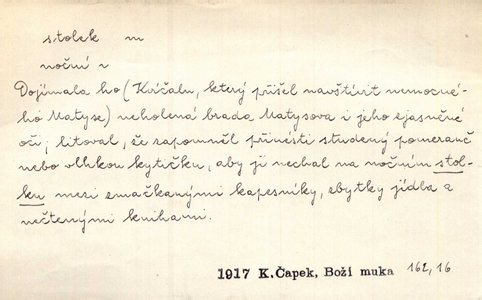 stolek m
noční n
Dojímala ho (Kvíčalu, který přišel navštívit nemocné-
ho Matyse) neholená brada Matysova i jeho zjasněné
oči; litoval, že zapomněl přinésti studený pomeranč
nebo vlhkou kytičku, aby ji nechal na nočním stol-
ku mezi zmačkanými kapesníky, zbytky jídla a
nečtenými knihami.
1917 K.Čapek, Boží muka 162,16